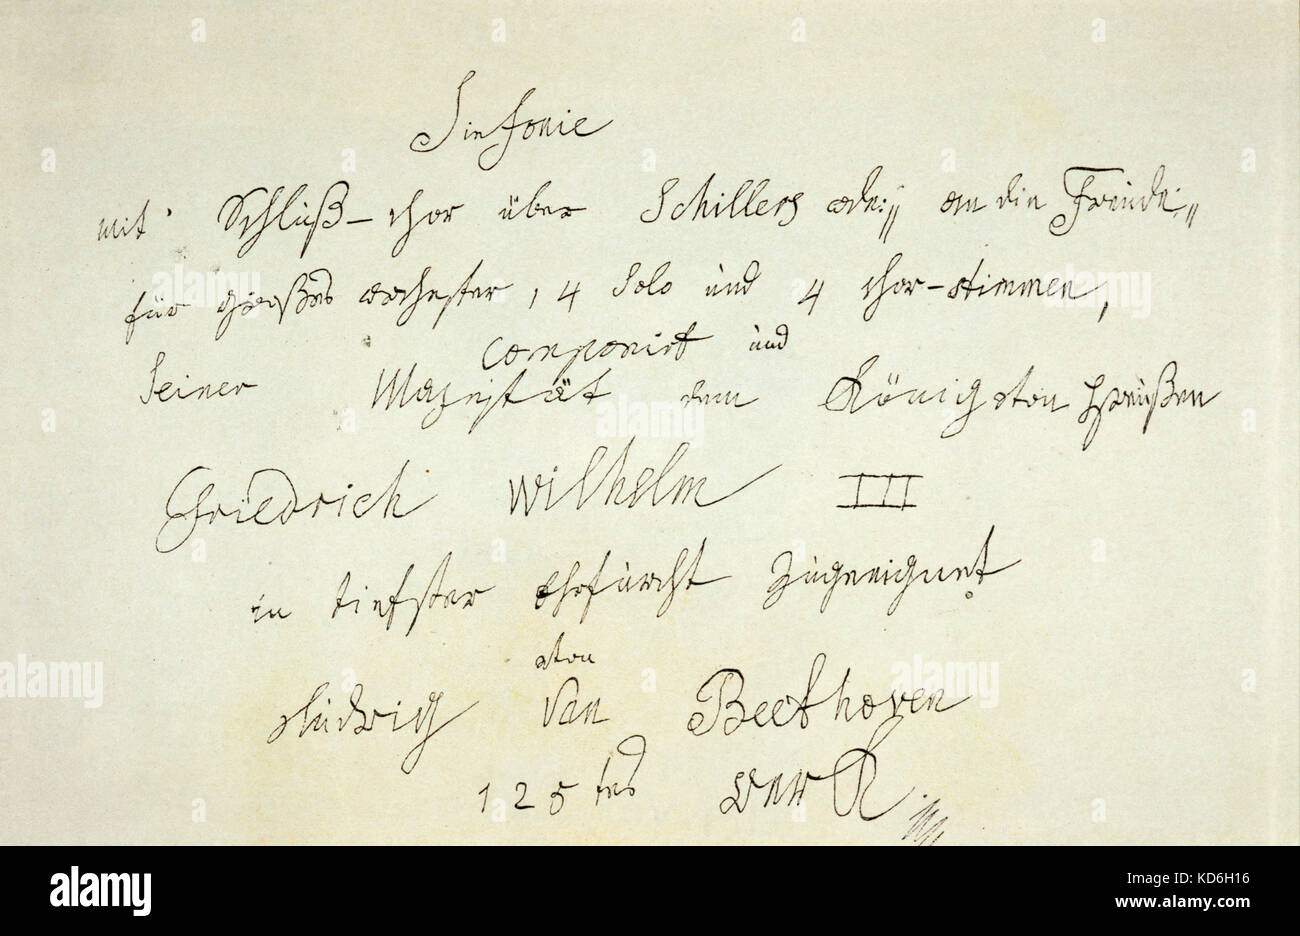 Sinfonie
mit Schluß-chor über Schillers ode:„ an die Freude:„
für großes orchester, 4 Solo und 4 chor-stimmen,
componirt und
Seiner Majestät dem König von Preußen
Friedrich Wilhelm III
in tiefster Ehrfurcht zugeeignet
von
Ludwig van Beethoven
125tes Werk
alamy stock photo
KD6H16
www.alamy.com